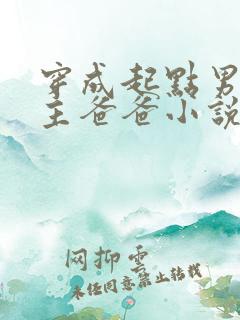 穿成起點男
主爸爸小説
网抑雲
未经同意禁止转载